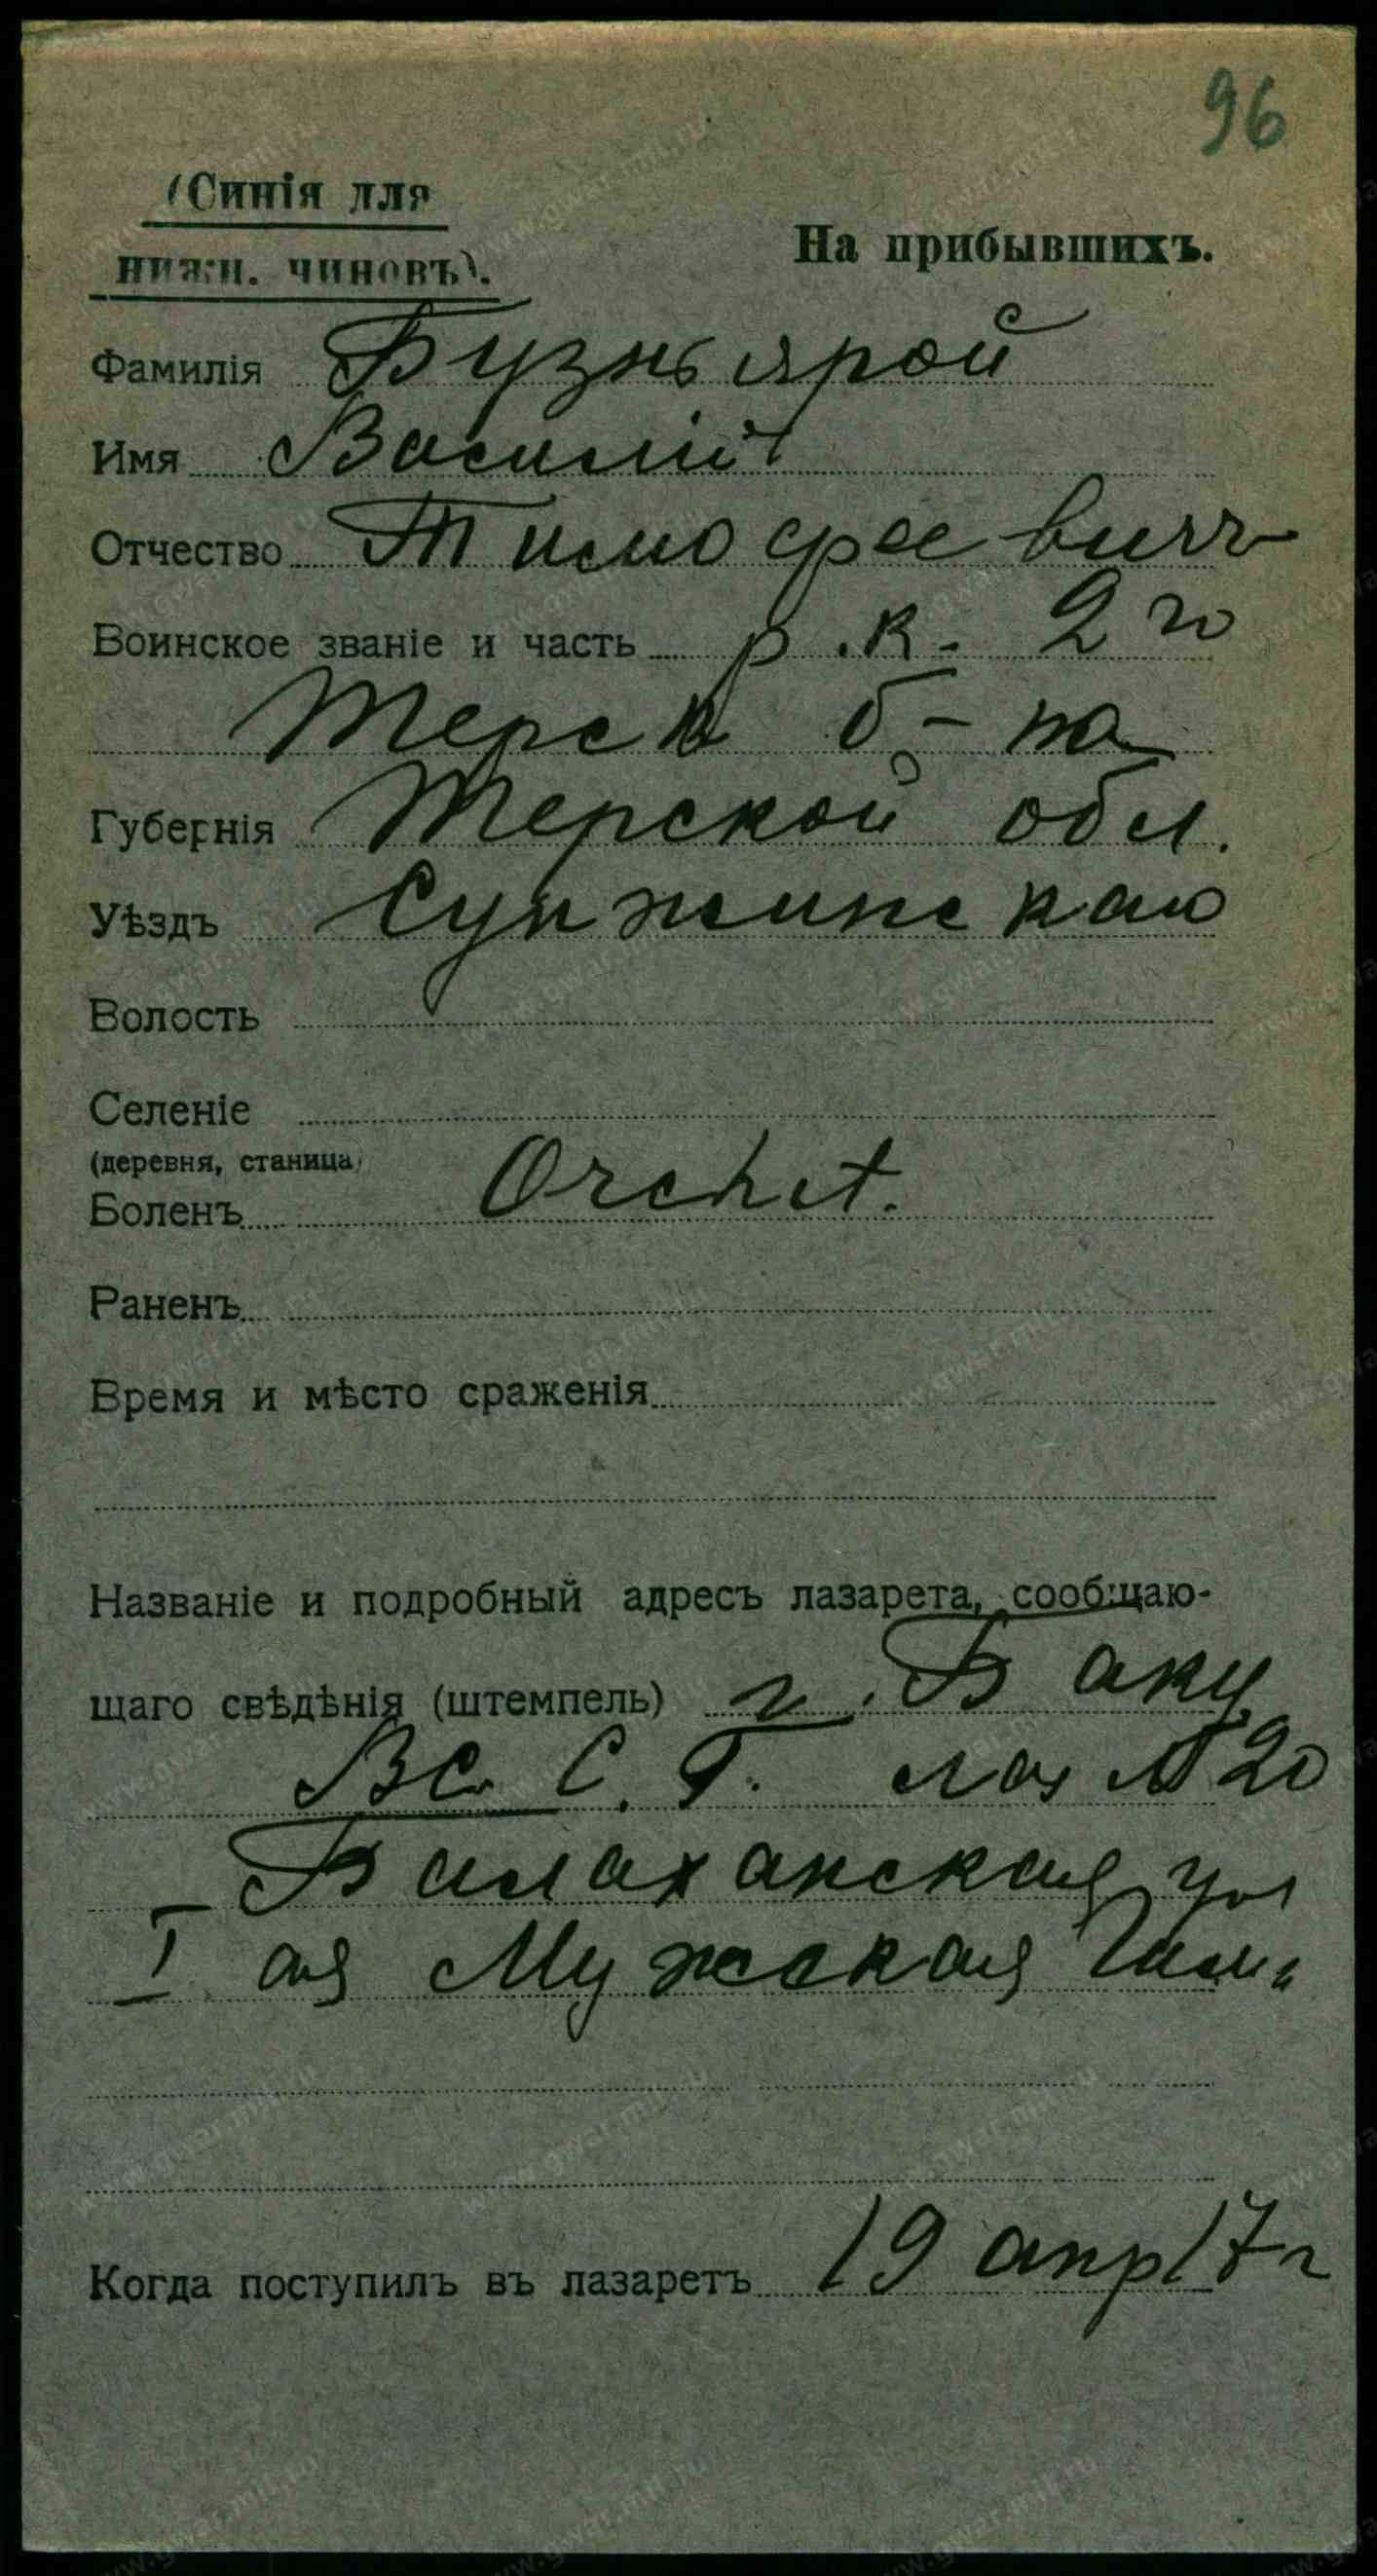 96
(Синія для
нижн. чиновъ).
На прибывшихъ.
Фамилія Бузньярой
Имя Василій
Отчество Тимофеевичъ
Воинское званіе и часть р.к. 2го
Терск б-на
Губернія Терской обл.
Уѣздъ Сунжинскаго
Волость
Селеніе
(деревня, станица)
Боленъ Orchit.
Раненъ
Время и мѣсто сраженія
Названіе и подробный адресъ лазарета, сообщаю-
щаго свѣдѣнія (штемпель) г. Баку
Вс. С. Г. лаз №20
Балаханская ул
I ая Мужская Гимн
Когда поступилъ въ лазаретъ 19 апр 17 г